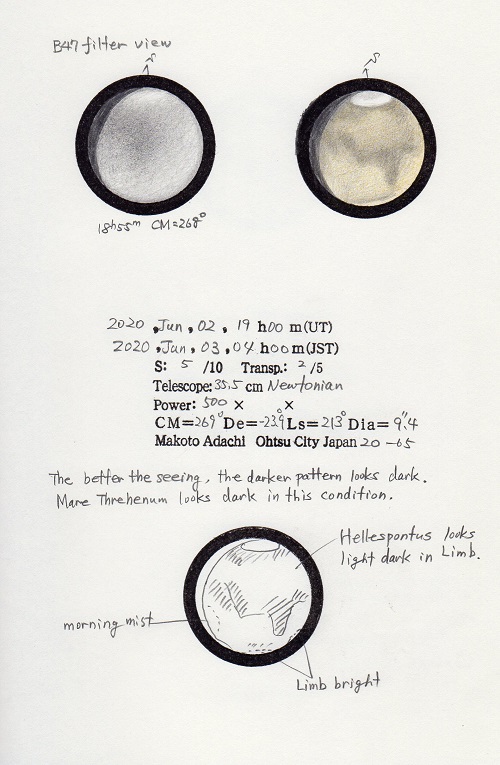 B47 filter view
S
S
18h55m CM=268°
2020 , Jun , 02 , 19 h00 m(UT)
2020 , Jun , 03 , 04 h00m(JST)
S: 5 /10 Transp.: 2 /5
Telescope: 35.5 cm Newtonian
Power: 500 × ×
CM=269° De=-23.9° Ls=213° Dia= 9".4
Makoto Adachi Ohtsu City Japan 20-65
The better the seeing, the darker pattern looks dark.
Mare Threhenum looks dark in this condition.
Hellespontus looks
light dark in Limb.
morning mist
Limb bright